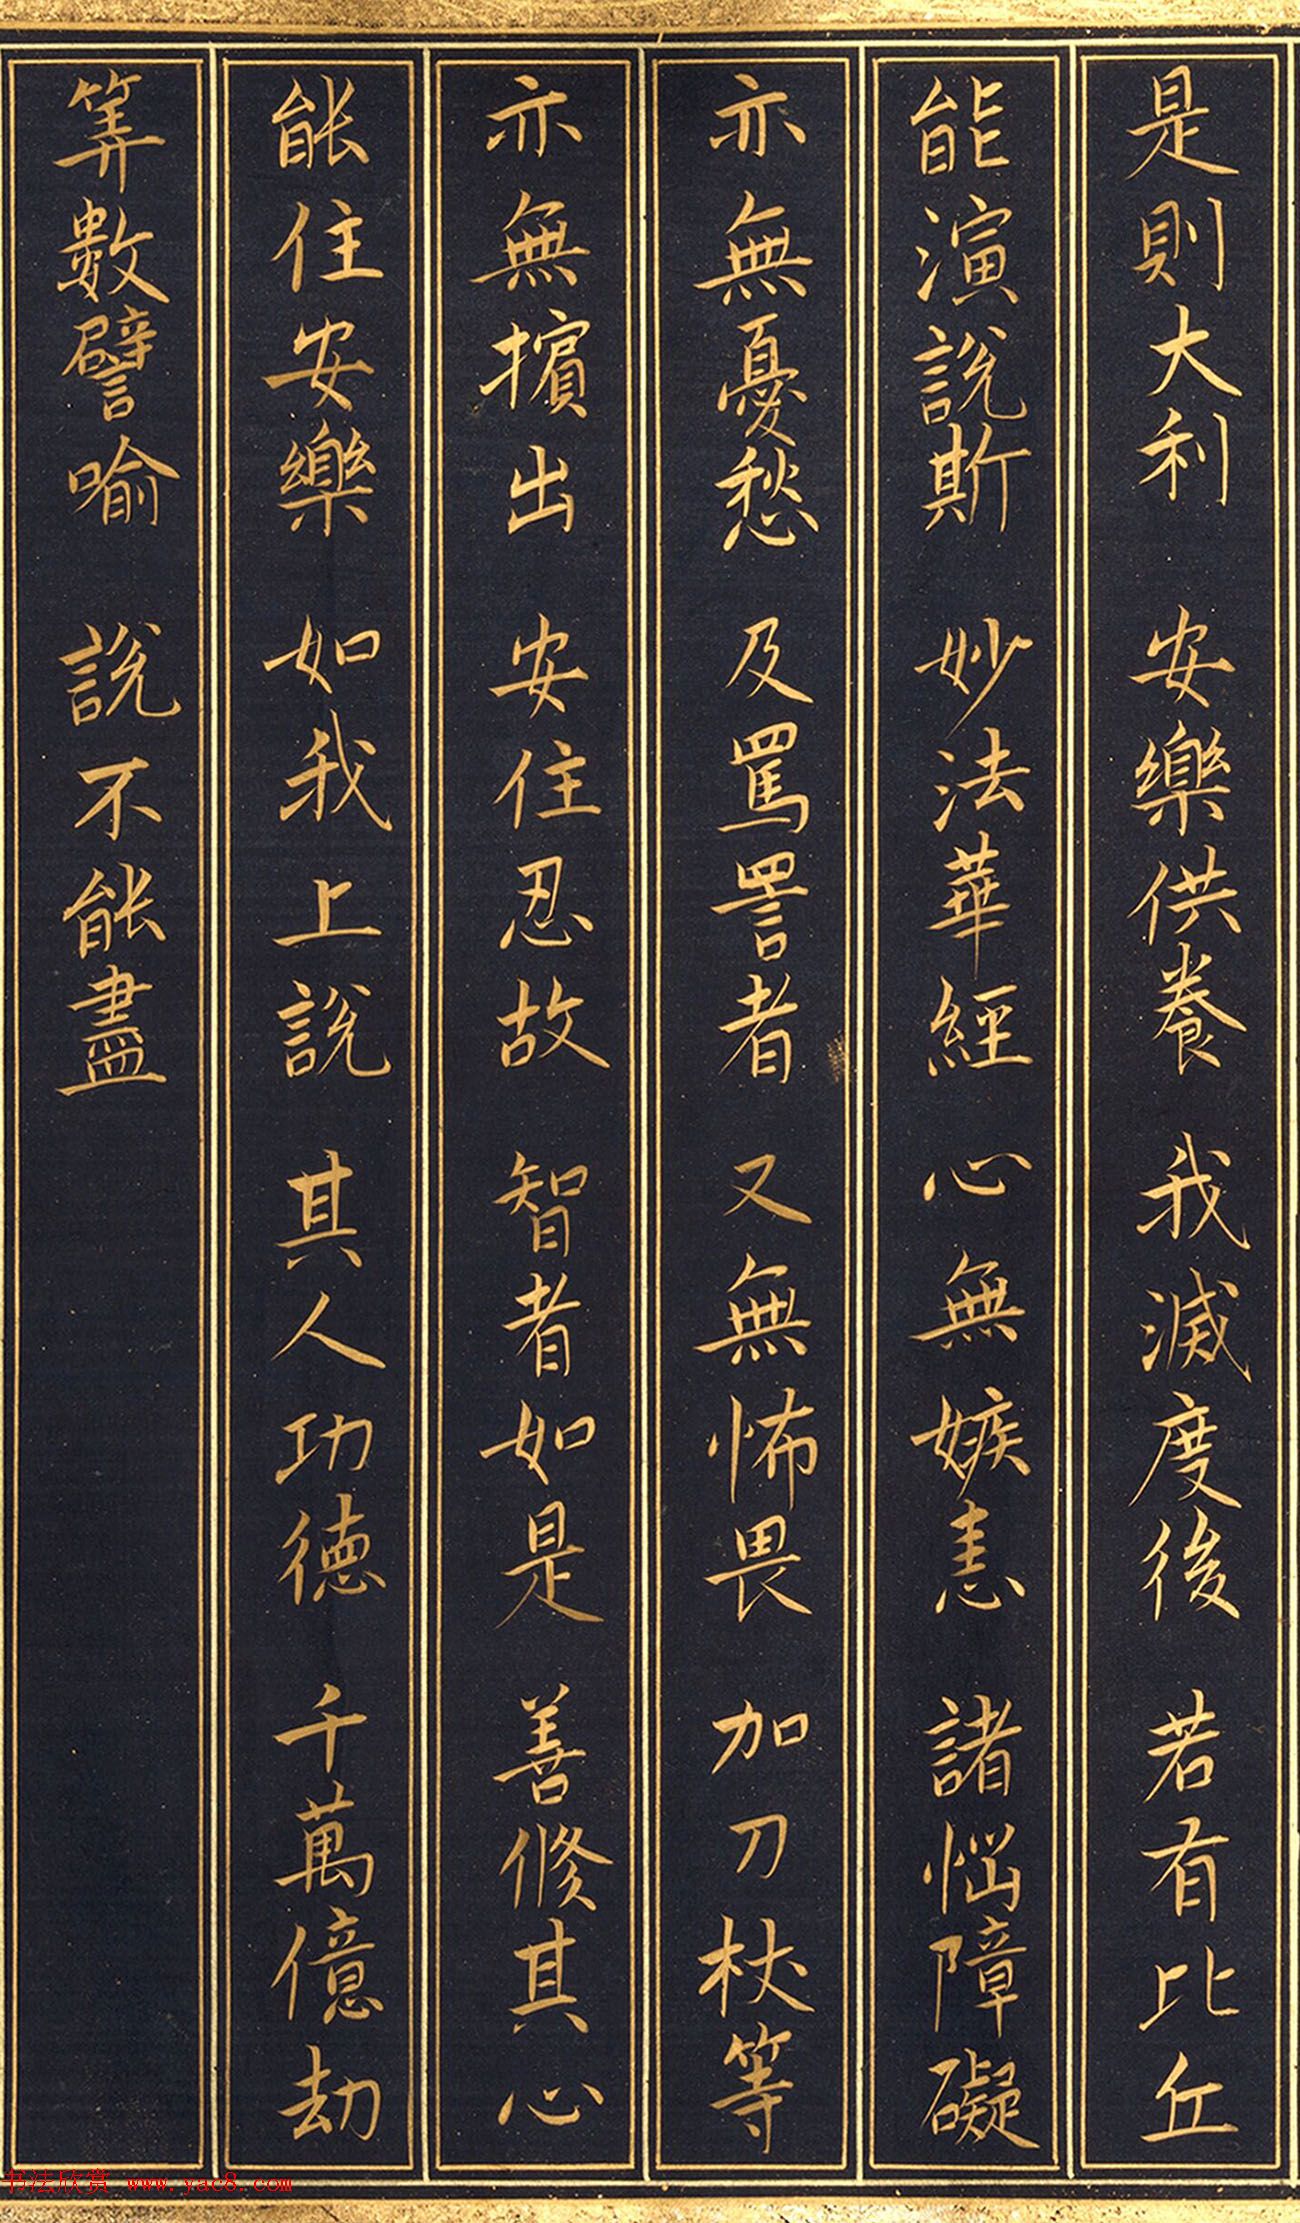 是則大利　安樂供養　我滅度後　若有比丘
能演說斯　妙法華經　心無嫉恚　諸惱障礙
亦無憂愁　及罵詈者　又無怖畏　加刀杖等
亦無擯出　安住忍故　智者如是　善修其心
能住安樂　如我上說　其人功德　千萬億劫
筭數譬喻　說不能盡
书法欣赏 www.yac8.com